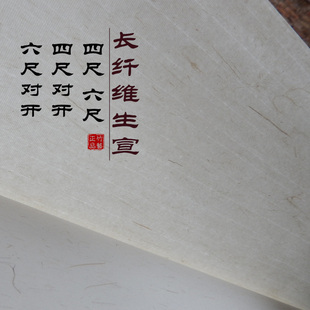 长纤维生宣
四尺 六尺
四尺对开
六尺对开